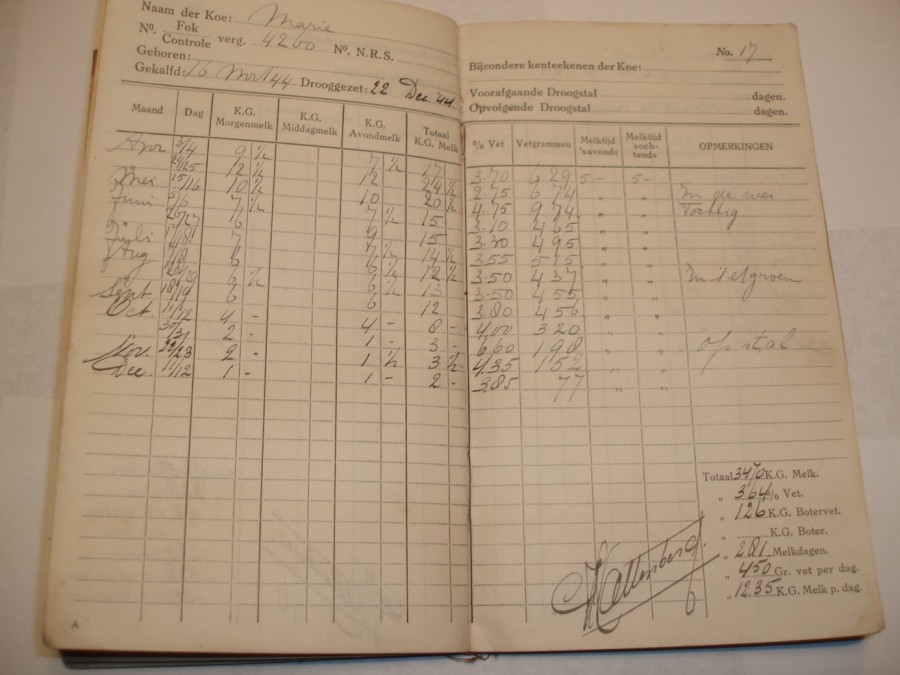 Naam der Koe: Marie
Nº. Fok Controle verg. 4260 Nº. N.R.S.
Geboren:
Gekalfd: 16 Mrt 44 Drooggezet: 22 Dec. 44.
Maand Dag K.G. Morgenmelk K.G. Middagmelk K.G. Avondmelk Totaal K.G. Melk
Apr 3/4 9 ½ 7 ½ 17
24/25 12 ½ 12 24 ½
Mei 15/16 10 ½ 10 20 ½
Juni 5/6 7 ½ 7 ½ 15
26/27
Juli
Aug 6 6 ½ 12 ½
6 ½ 6 ½ 13
Sept 18/19 6 6 12
Oct. 11/12 4 - 4 - 8 -
30/31 2 - 1 - 3 -
Nov. 22/23 2 - 1 ½ 3 ½
Dec. 11/12 1 - 1 - 2 -
No. 17
Bijzondere kenteekenen der Koe:
Voorafgaande Droogstal dagen.
Opvolgende Droogstal dagen.
% Vet Vetgrammen Melktijd 'savonds Melktijd 'sochtends OPMERKINGEN
3.70 629 5.- 5-
2.75 674 " " In de wei
4.75 974 " " Tochtig
3.10 465 " "
3.30 495 " "
3.55 515 " "
3.50 437 " " In 't etgroen
3.50 455 " "
3.80 456 " "
4.00 320 " "
6.60 198 " " op stal
4.35 152 " "
3.85 77 " "
Totaal 3470 K.G. Melk.
" 3.64 % Vet.
" 126 K.G. Botervet.
" K.G. Boter.
" 281 Melkdagen.
" 450 Gr. vet per dag.
" 12.35 K.G. Melk p. dag.
Hettenberg.
A